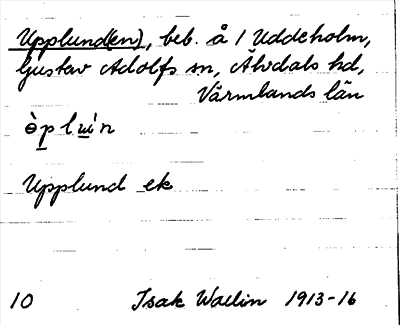 Upplund(en), beb. å / Uddeholm,
Gustav Adolfs sn, Älvdals hd,
Värmlands län
Upplund ek
10 Isak Wallin 1913-16